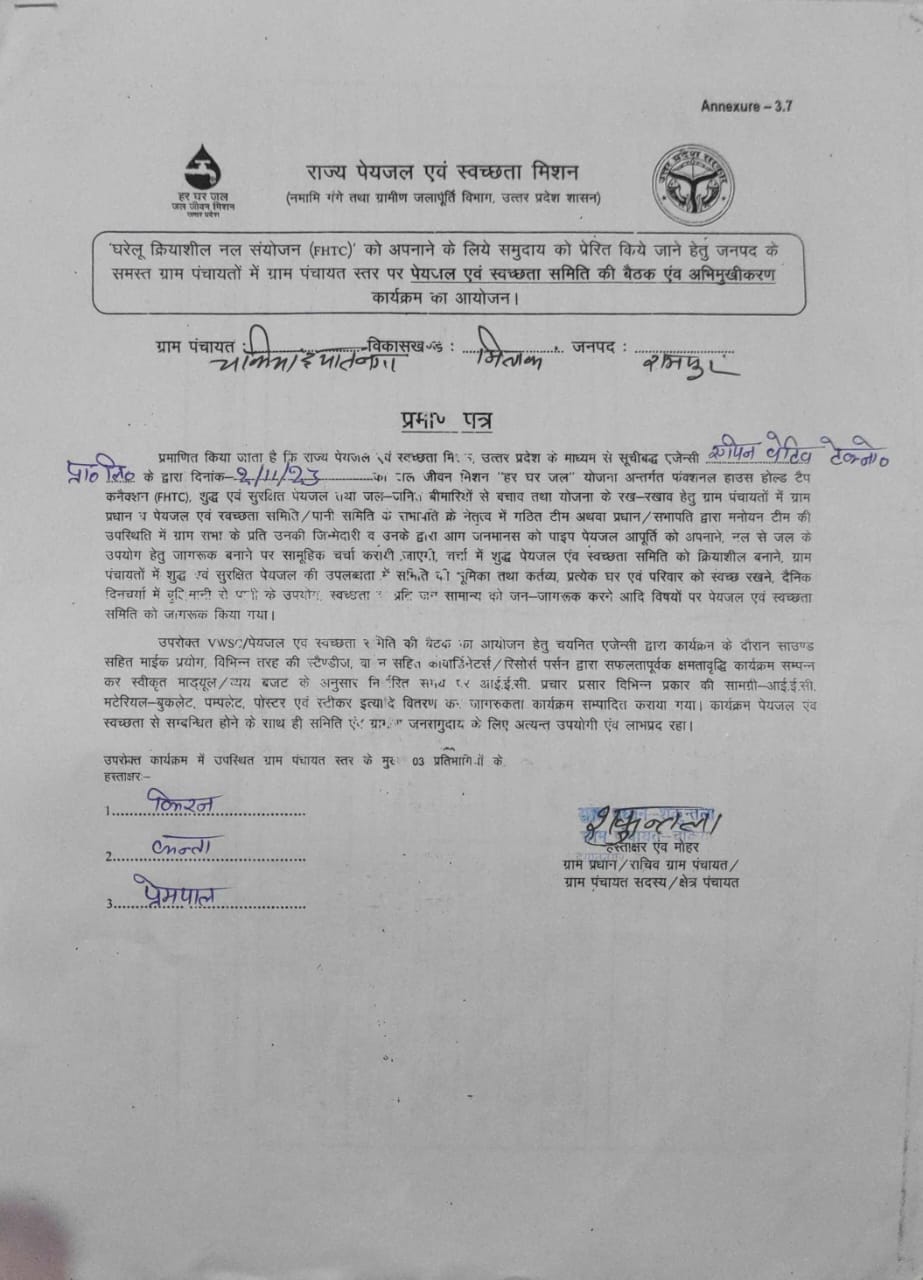 Annexure – 3.7
हर घर जल
जल जीवन मिशन
उत्तर प्रदेश
राज्य पेयजल एवं स्वच्छता मिशन
उत्तर प्रदेश सरकार
(नमामि गंगे तथा ग्रामीण जलापूर्ति विभाग, उत्तर प्रदेश शासन)
'घरेलू क्रियाशील नल संयोजन (FHTC)' को अपनाने के लिये समुदाय को प्रेरित किये जाने हेतु जनपद के
समस्त ग्राम पंचायतों में ग्राम पंचायत स्तर पर पेयजल एवं स्वच्छता समिति की बैठक एंव अभिमुखीकरण
कार्यक्रम का आयोजन।
ग्राम पंचायत : विकासखण्ड : मिलक जनपद : रामपुर
प्रमाण पत्र
प्रमाणित किया जाता है कि राज्य पेयजल एवं स्वच्छता मिशन, उत्तर प्रदेश के माध्यम से सूचीबद्ध एजेन्सी
प्रा० लि० के द्वारा दिनांक 2/11/23 को जल जीवन मिशन "हर घर जल" योजना अन्तर्गत फंक्शनल हाउस होल्ड टैप
कनैक्शन (FHTC), शुद्ध एवं सुरक्षित पेयजल तथा जल–जनित बीमारिंयों से बचाव तथा योजना के रख–रखाव हेतु ग्राम पंचायतों में ग्राम
प्रधान व पेयजल एवं स्वच्छता समिति/पानी समिति के सभापति के नेतृत्व में गठित टीम अथवा प्रधान/सभापति द्वारा मनोयन टीम की
उपस्थिति में ग्राम सभा के प्रति उनकी जिम्मेदारी व उनके द्वारा आम जनमानस को पाइप पेयजल आपूर्ति को अपनाने, नल से जल के
उपयोग हेतु जागरूक बनाने पर सामूहिक चर्चा करायी जाएगी, चर्चा में शुद्ध पेयजल एंव स्वच्छता समिति को क्रियाशील बनाने, ग्राम
पंचायतों में शुद्ध एवं सुरक्षित पेयजल की उपलब्धता में समिति की भूमिका तथा कर्तव्य, प्रत्येक घर एवं परिवार को स्वच्छ रखने, दैनिक
दिनचर्या में बुद्धिमानी से पानी के उपयोग, स्वच्छता के प्रति जन सामान्य को जन–जागरूक करने आदि विषयों पर पेयजल एवं स्वच्छता
समिति को जागरूक किया गया।
उपरोक्त VWSC/पेयजल एवं स्वच्छता समिति की बैठक का आयोजन हेतु चयनित एजेन्सी द्वारा कार्यक्रम के दौरान साउण्ड
सहित माईक प्रयोग, विभिन्न तरह की स्टैण्डीज, वाहन सहित कोवार्डिनेटर्स/रिसोर्स पर्सन द्वारा सफलतापूर्वक क्षमतावृद्धि कार्यक्रम सम्पन्न
कर स्वीकृत माड्यूल/व्यय बजट के अनुसार निर्धारित समय पर आई.ई.सी. प्रचार प्रसार विभिन्न प्रकार की सामग्री–आई.ई.सी.
मटेरियल–बुकलेट, पम्पलेट, पोस्टर एवं स्टीकर इत्यादि वितरण कर जागरुकता कार्यक्रम सम्पादित कराया गया। कार्यक्रम पेयजल एंव
स्वच्छता से सम्बन्धित होने के साथ ही समिति एंव ग्रामीण जनसमुदाय के लिए अत्यन्त उपयोगी एंव लाभप्रद रहा।
उपरोक्त कार्यक्रम में उपस्थित ग्राम पंचायत स्तर के मुख्य 03 प्रतिभागियों के
हस्ताक्षरः–
1. किरन
2. कान्ता
3. प्रेमपाल
शकुन्तला
हस्ताक्षर एंव मोहर
ग्राम प्रधान/सचिव ग्राम पंचायत/
ग्राम पंचायत सदस्य/क्षेत्र पंचायत